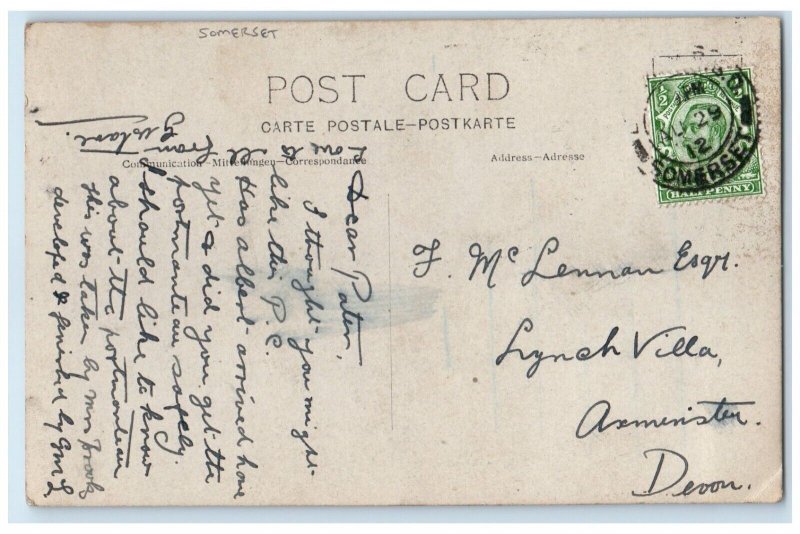 SOMERSET
POST CARD
CARTE POSTALE-POSTKARTE
Communication-Mitteilungen-Correspondance
Address-Adresse
JY 29
12
SOMERSET
HALFPENNY
F. Mc Lennan Esqr.
Lynch Villa,
Axminster.
Devon.
Dear Pater,
I thought you might
like this P.C.
Has albert arrived home
yet & did you get the
portmanteau safely.
I should like to know
about the portmanteau
this was taken by Mrs
developed & finished by
Love to all from